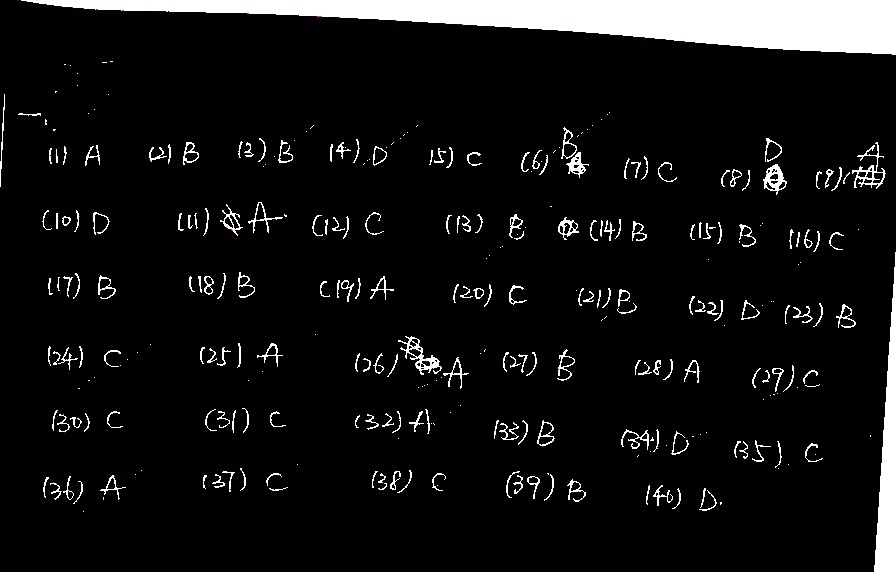 一、
(1) A (2) B (3) B (4) D (5) C (6) B (7) C (8) D (9) A
(10) D (11) A (12) C (13) B (14) B (15) B (16) C
(17) B (18) B (19) A (20) C (21) B (22) D (23) B
(24) C (25) A (26) A (27) B (28) A (29) C
(30) C (31) C (32) A (33) B (34) D (35) C
(36) A (37) C (38) C (39) B (40) D.